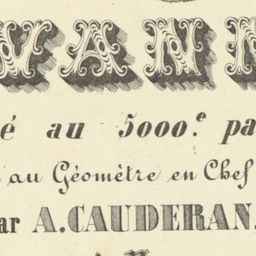 VANN
é au 5000.e pa
au Géomètre en Chef
ar A. CAUDERAN.